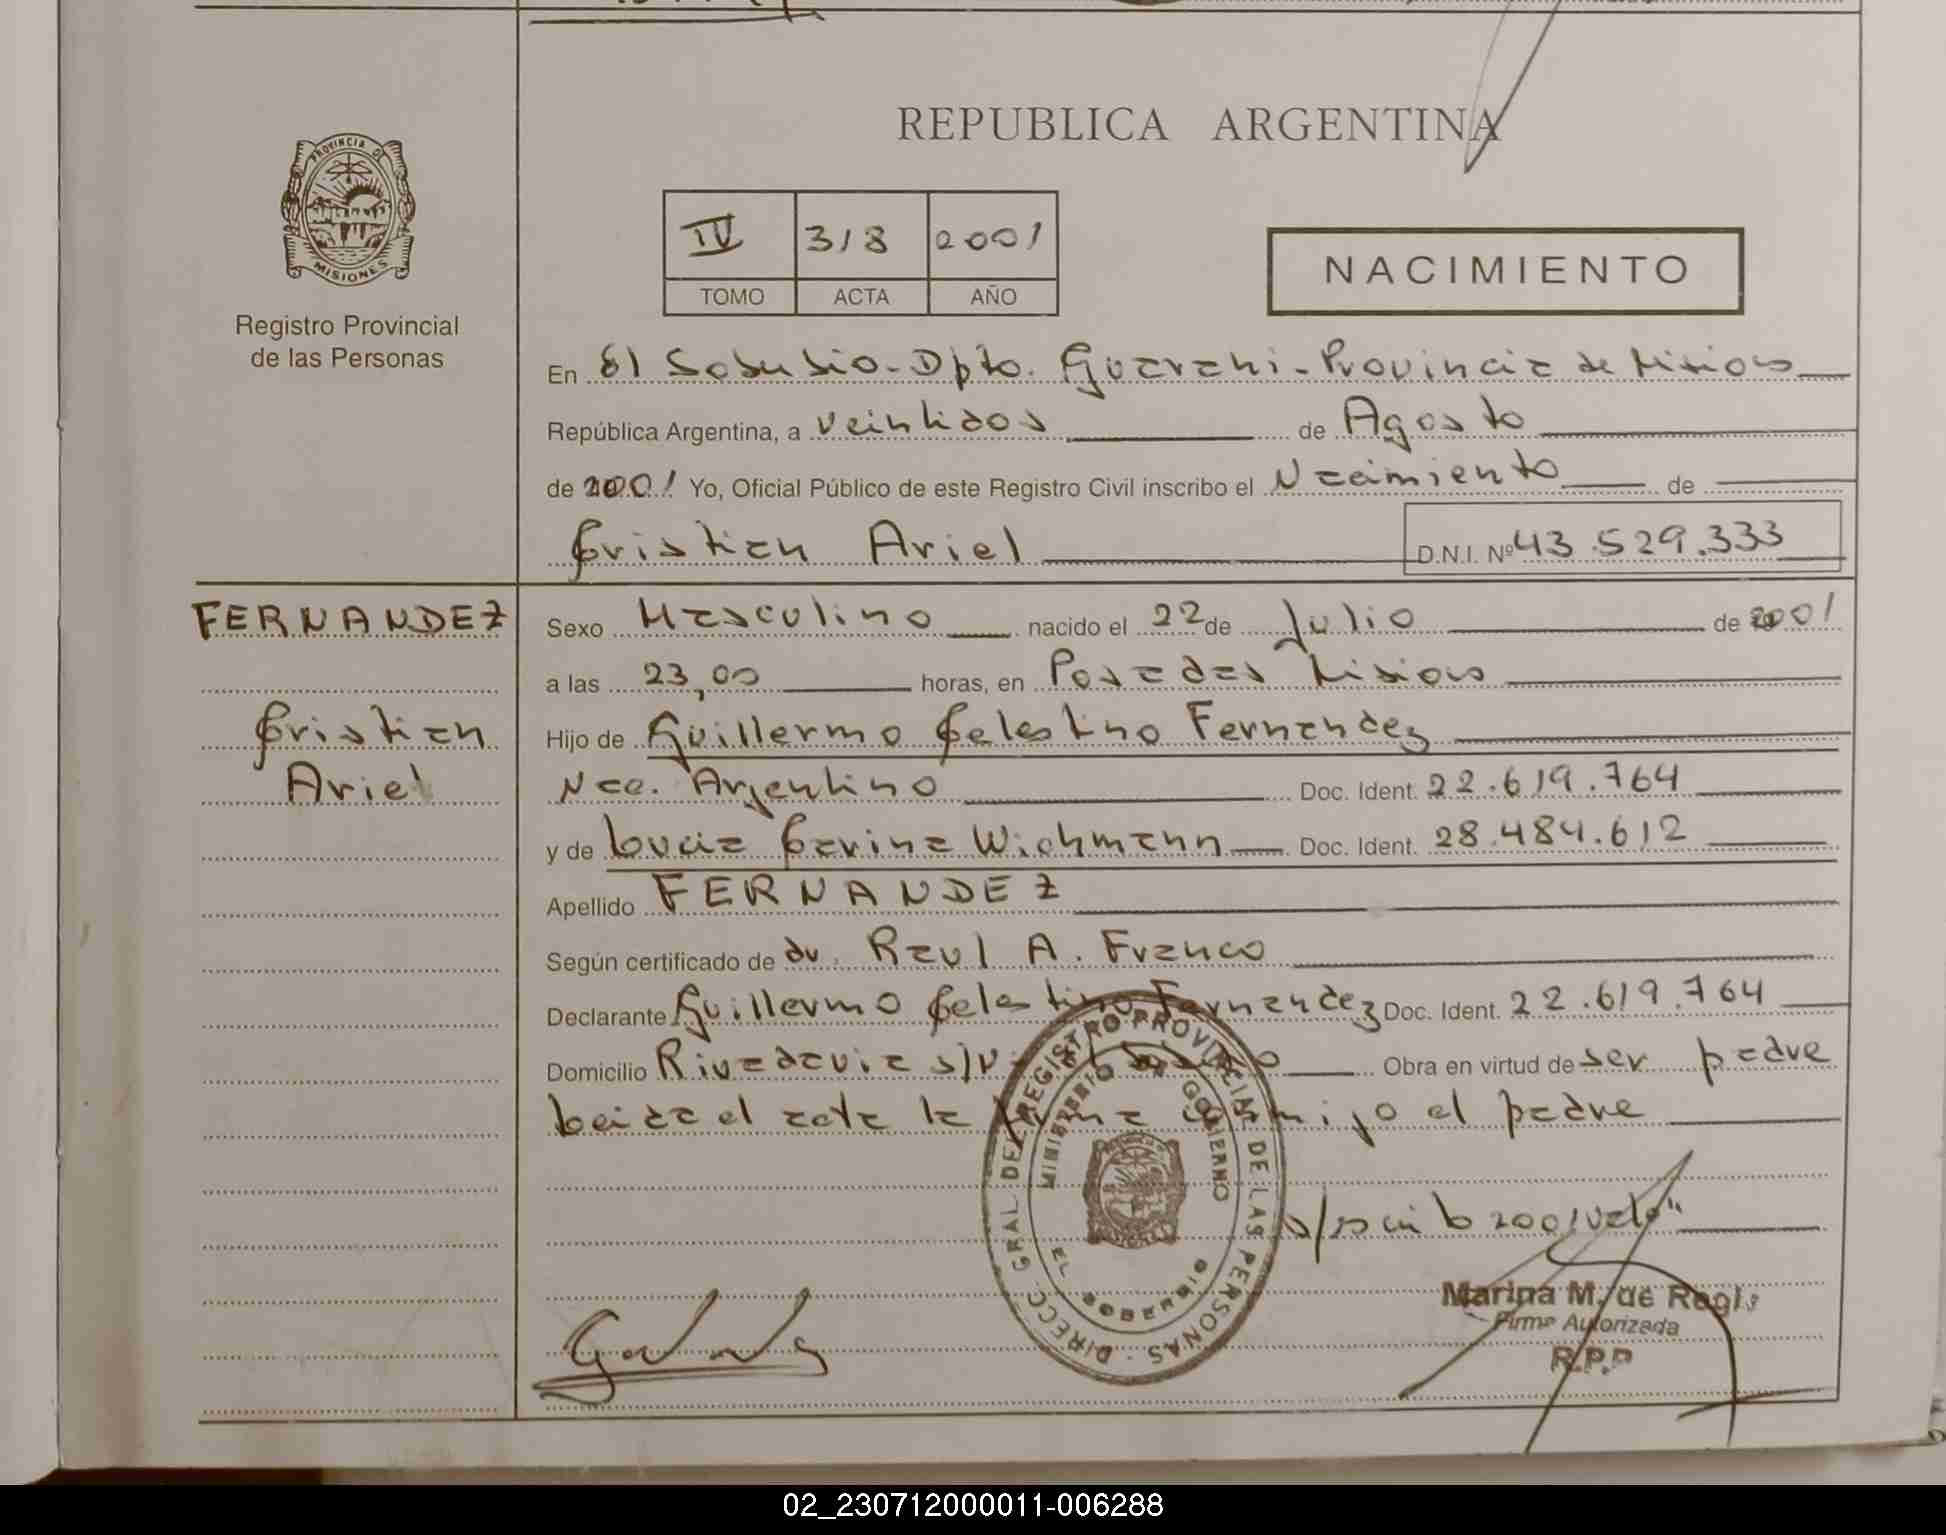 REPUBLICA ARGENTINA
PROVINCIA DE
MISIONES
Registro Provincial
de las Personas
IV 318 2001
TOMO ACTA AÑO
NACIMIENTO
En El Soberbio - Dpto. Guarani - Provincia de Misiones
República Argentina, a veintidos de Agosto
de 2001 Yo, Oficial Público de este Registro Civil inscribo el Nacimiento de
Cristian Ariel D.N.I. Nº 43.529.333
FERNANDEZ
Cristian
Ariel
Sexo Masculino nacido el 22 de Julio de 2001
a las 23,00 horas, en Posadas Misiones
Hijo de Guillermo Celestino Fernandez
Nac. Argentino Doc. Ident. 22.619.764
y de Lucia Carina Wichmann Doc. Ident. 28.484.612
Apellido FERNANDEZ
Según certificado de dr. Raul A. Franco
Declarante Guillermo Celestino Fernandez Doc. Ident. 22.619.764
Domicilio Rivadavia s/n Obra en virtud de ser padre
Leida el acta la firma conmigo el padre
2001 vale"
DIRECC. GRAL. DEL REGISTRO PROVINCIAL DE LAS PERSONAS
MINISTERIO DE GOBIERNO
EL SOBERBIO
Marina M. de Regis
Firma Autorizada
R.P.P
02_230712000011-006288